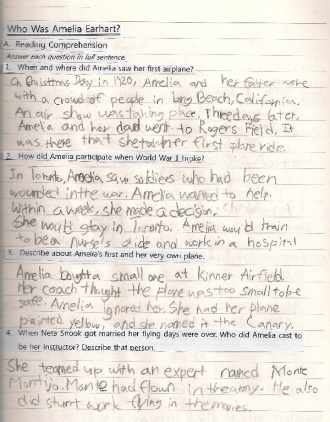 Who Was Amelia Earhart?
A. Reading Comprehension
Answer each question in full sentence.
1. When and where did Amelia saw her first airplane?
On Christmas Day in 1920, Amelia and her father were
with a crowd of people in Long Beach, California.
An air show was taking place. Three days later,
Amelia and her dad went to Rogers Field. It
was there that she took her first plane ride.
2. How did Amelia participate when World War 1 broke?
In Toronto, Amelia saw soldiers who had been
wounded in the war. Amelia wanted to help.
Within a week, she made a decision.
She would stay in Toronto. Amelia would train
to be a nurse's aide and work in a hospital
3. Describe about Amelia's first and her very own plane.
Amelia bought a small one at Kinner Airfield.
Her coach thought the plane was too small to be
safe. Amelia ignored her. She had her plane
painted yellow, and she named it the Canary.
4. When Neta Snook got married her flying days were over. Who did Amelia cast to
be her instructor? Describe that person.
She teamed up with an expert named Monte
Montijo. Monte had flown in the army. He also
did stunt work flying in the movies.